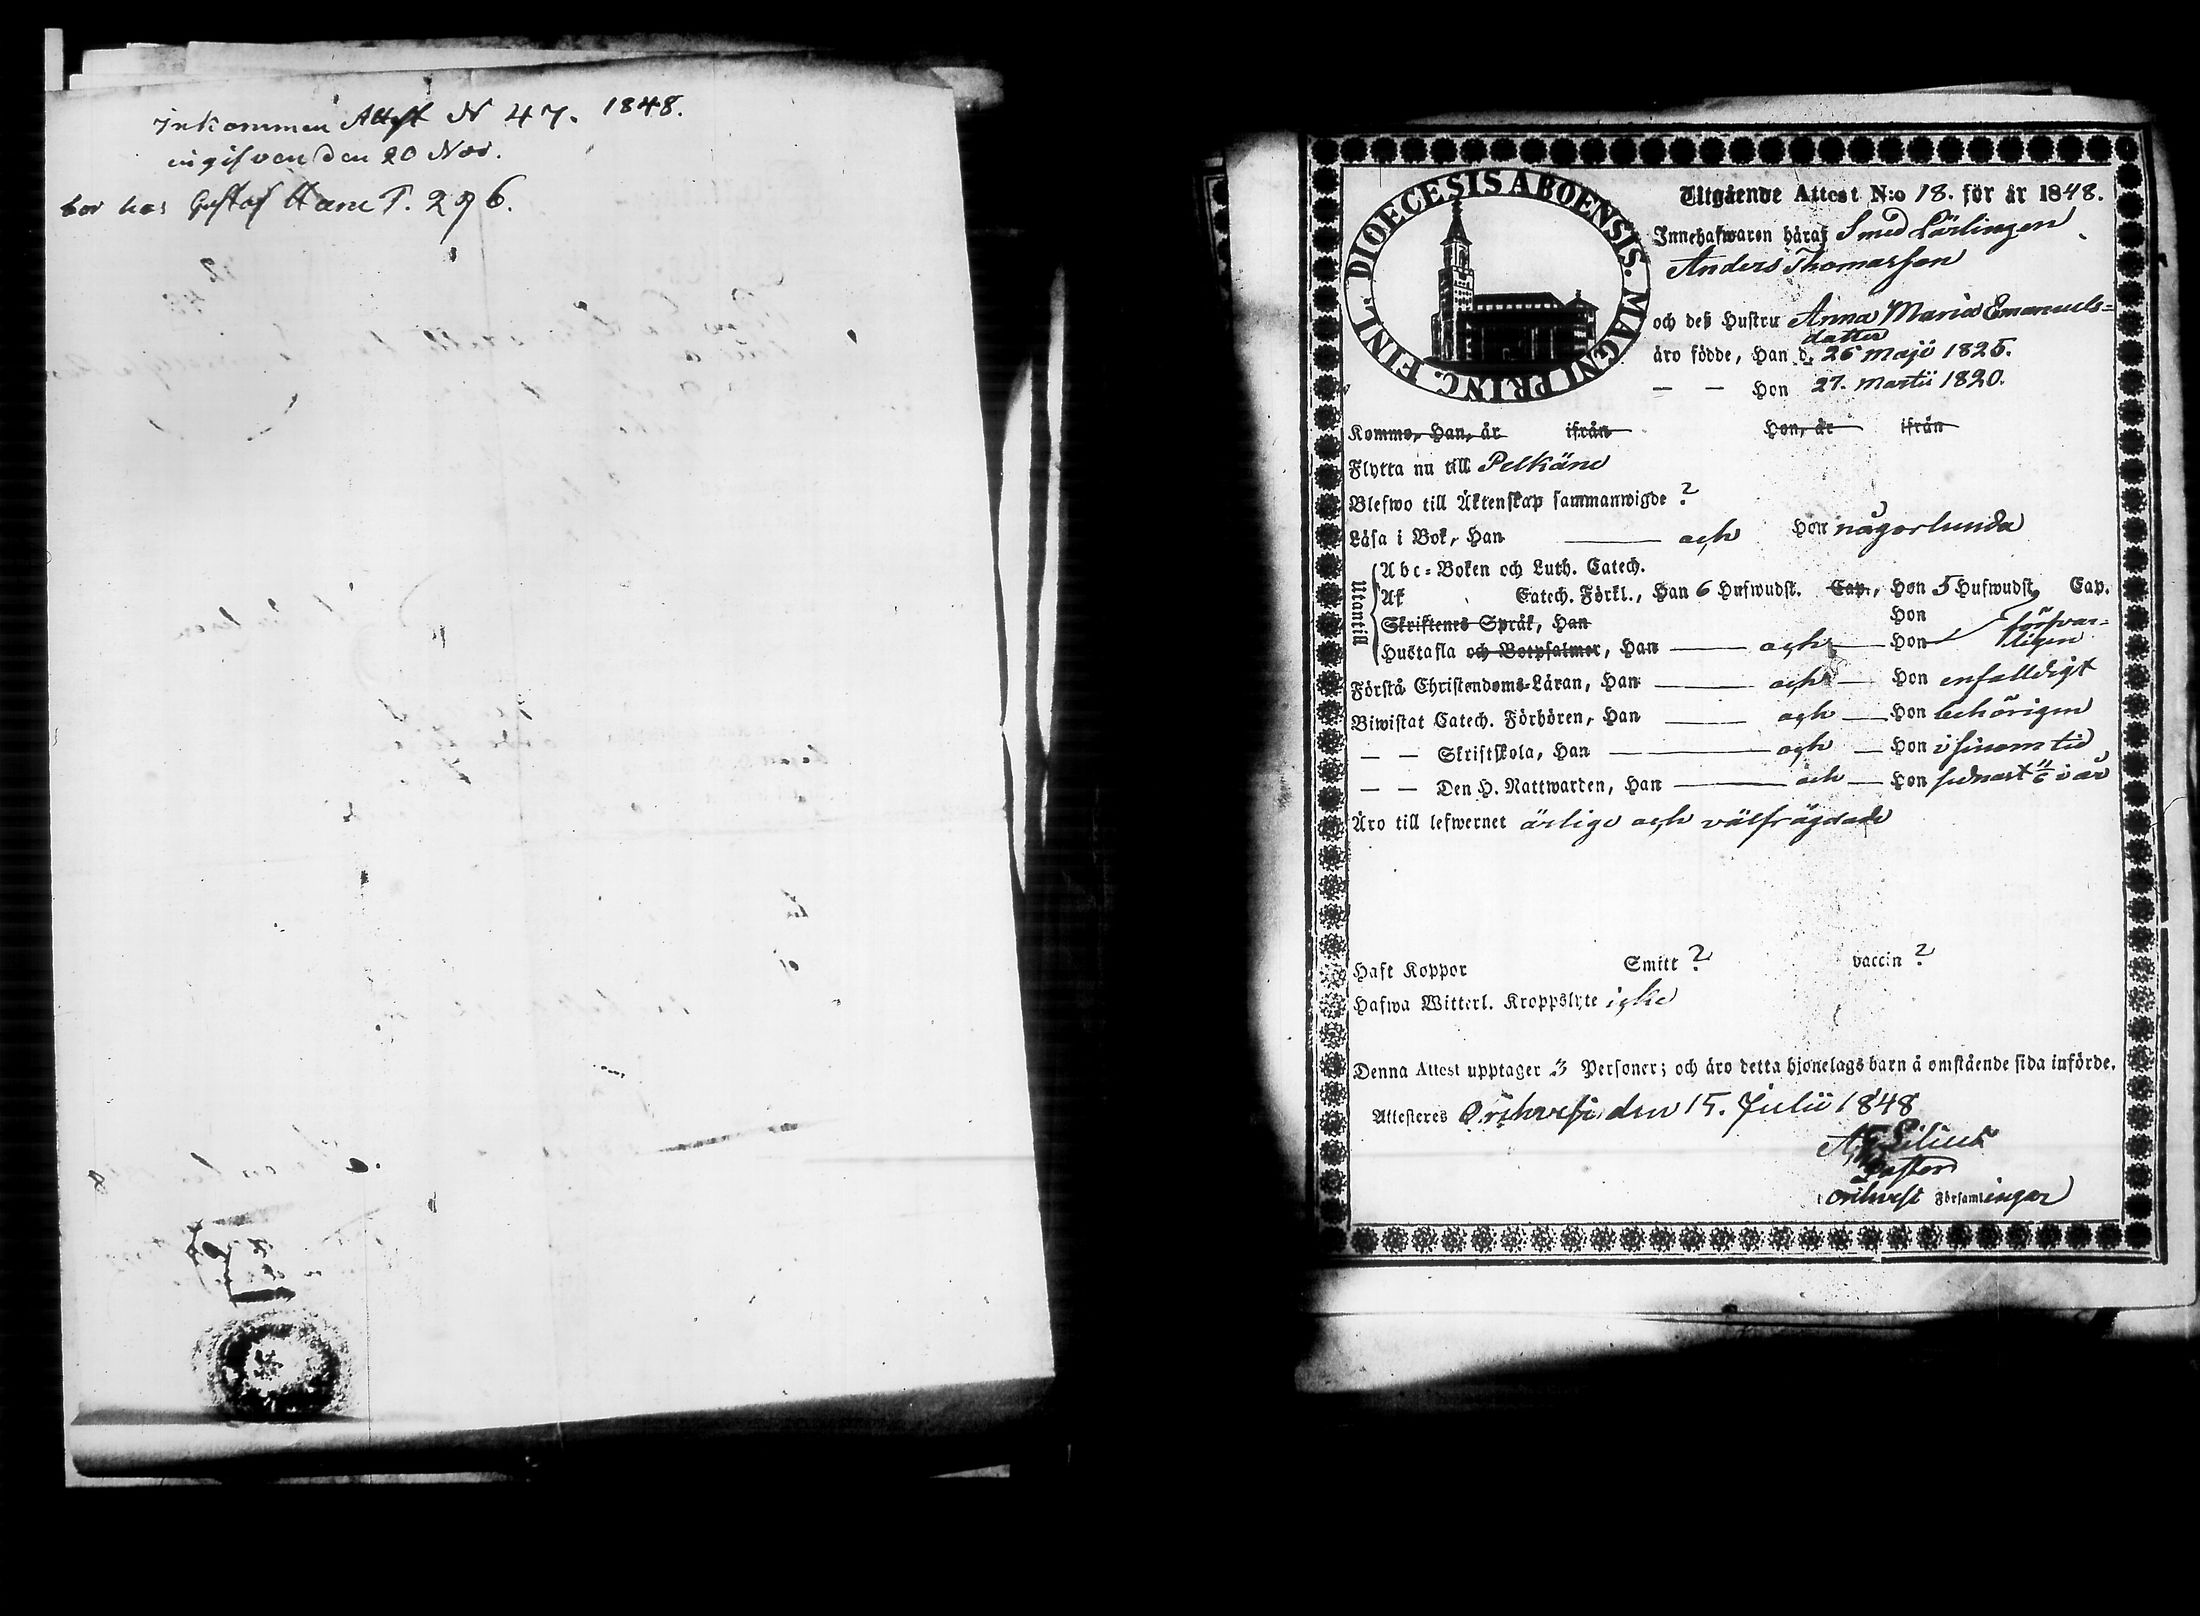 Inkommen Attest N 47. 1848.
ingifven den 20 Nov.
bor hos Gustaf Hane P. 296.
DIOECESIS ABOENSIS. MAGNI PRINC. FINL.
Utgående Attest N:o 18. för år 1848.
Innehafwaren häraf Smed Lärlingen
Anders Thomasson
och deß Hustru Anna Maria Emanuels-
dotter
äro födde, Han d. 26 Maji 1825.
— — Hon 27. Martii 1820.
Kommo, Han, år ifrån Hon, år ifrån
Flytta nu till Pelkäne
Blefwo till Äktenskap sammanwigde ?
Läsa i Bok, Han — och Hon någorlunda
Utantill
Abc-Boken och Luth. Catech.
Af Catech. Förkl., Han 6 Hufwudst. Cap., Hon 5 Hufwudst. Cap.
Skriftenes Språk, Han Hon försvar-
Hustafla och Botpsalmer, Han — och — Hon ligen
Förstå Christendoms-Läran, Han — och — Hon enfalldigt
Biwistat Catech. Förhören, Han — och — Hon behörigen
— — Skriftskola, Han — och — Hon i sinom tid
— — Den H. Nattwarden, Han — och — Hon sednast 11/6 i år
Äro till lefwernet ärlige och välfrägdade
Haft Koppor Smitt ? vaccin ?
Hafwa Witterl. Kroppslyte icke
Denna Attest upptager 3 Personer; och äro detta hjonelags barn å omstående sida införde.
Attesteras Orihvesi den 15. Julii 1848
Lilius
Pastor
i Orihvesi Församlingar